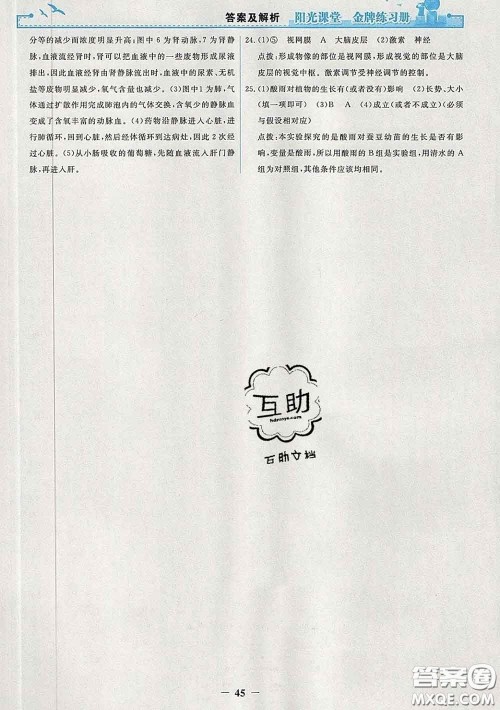 答案及解析
阳光课堂 金牌练习册
分等的减少而浓度明显升高;图中6为肾动脉,7为肾静
脉,血液流经肾时,肾可以把血液中的一些废物形成尿液
排出,因此血液经肾由肾静脉流出时,血液中的尿素、无机
盐等废物明显减少,氧气含量也减少。(3)图中1为肺,气
体通过扩散作用完成肺泡内的气体交换,含氧少的静脉血
变成了含氧丰富的动脉血。(4)药物沿静脉进入心脏,进
行肺循环到心脏,再经体循环到达病灶处,因此2次经
过心脏。(5)从小肠吸收的葡萄糖,先随血液流入肝门静
脉,再进入肝。
24.(1)⑤ 视网膜 A 大脑皮层 (2)激素 神经
点拨:形成物像的部位是视网膜,形成视觉的部位是大脑
皮层的视觉中枢。激素调节受神经调节的控制。
25.(1)酸雨对植物的生长有(或者没有)影响 (2)长势、大小
(填一项即可) (3)B A (4)成立(或者不成立)(必须
与假设相对应)
点拨:本实验探究的是酸雨对蚕豆幼苗的生长是否有影
响,变量是酸雨,所以使用酸雨的B组是实验组,用清水的A
组为对照组,其他条件应该均相同。
互助
hdzuoye.com
互助文档
45
答案圈
MXQE.COM